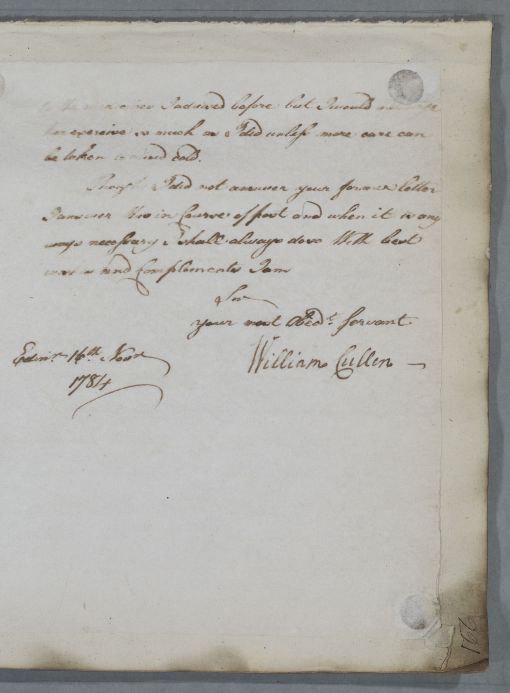 to the exercises I advised before but I would not
her exercise so much as I did unless more care can
be taken to avoid cold.
Tho I did not answer your former letter
I answer this in course of post and when it is any
ways necessary I shall always do so With best
and Complements I am
Sir
your most Obedt. servant
William Cullen
Edinr. 16th Novr
1784
166